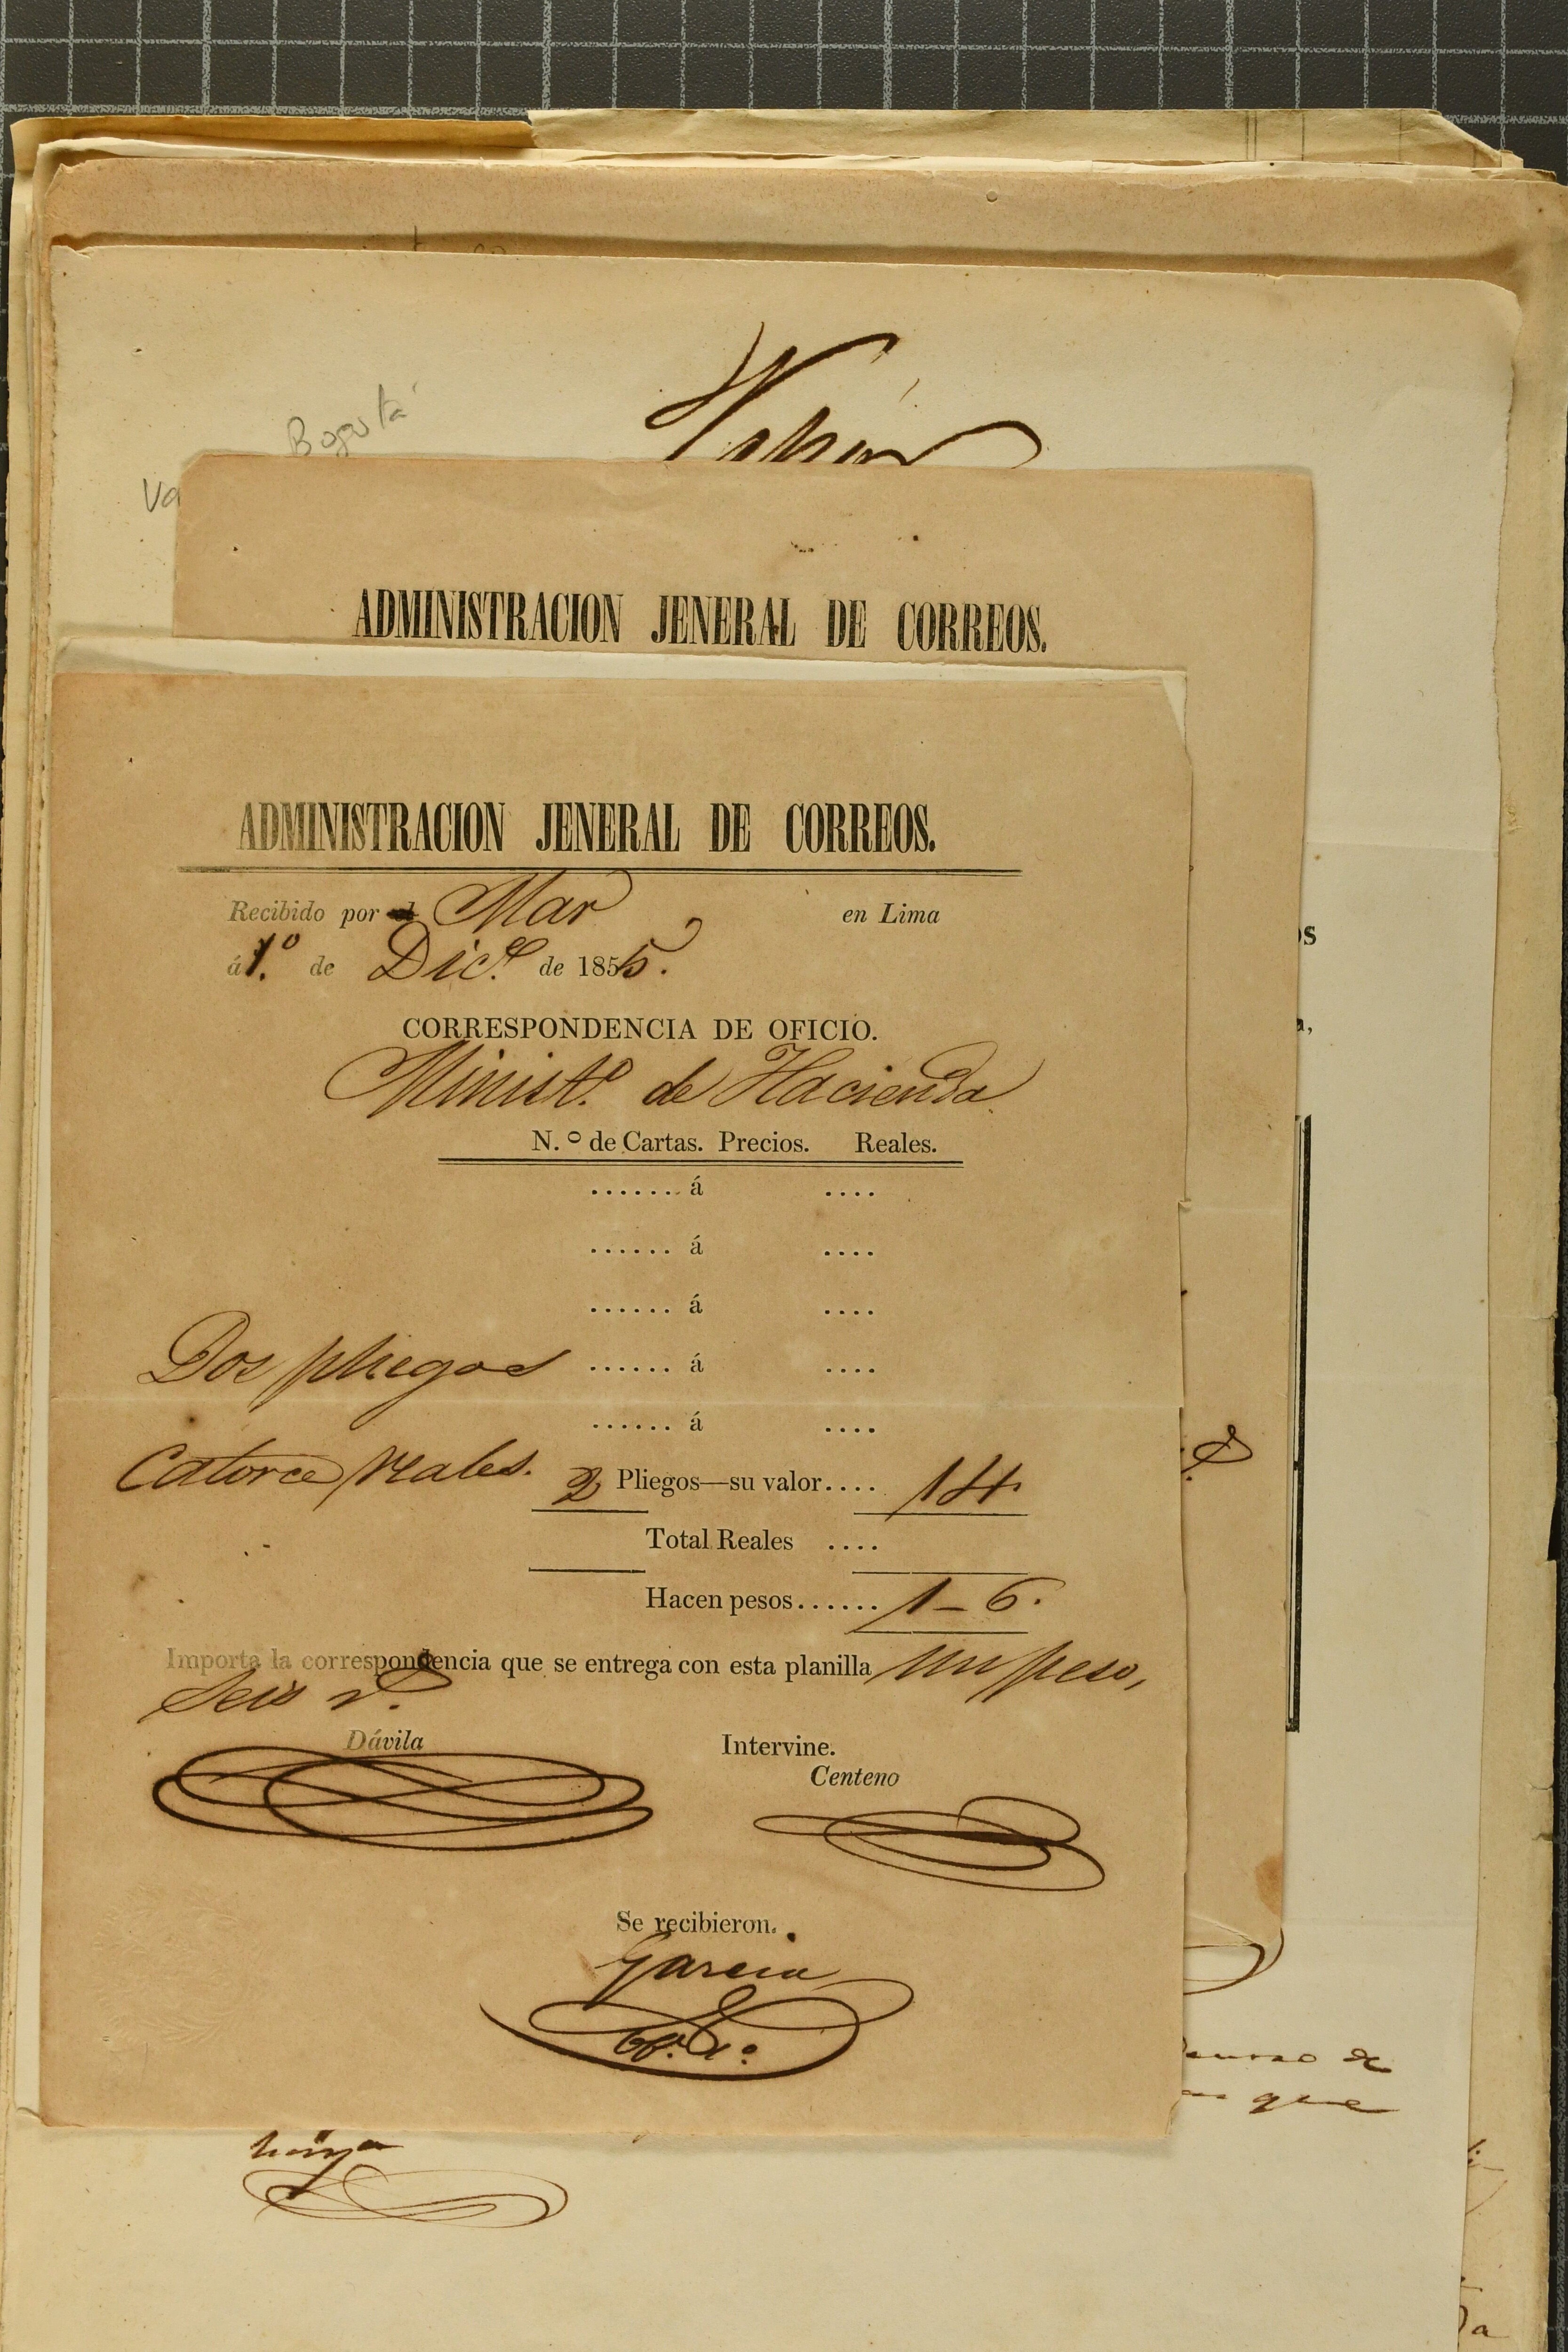 Bogotá
ADMINISTRACION JENERAL DE CORREOS.
ADMINISTRACION JENERAL DE CORREOS.
Recibido por el Mar en Lima
á 1.º de Dic.e de 1855.
CORRESPONDENCIA DE OFICIO.
Minist.º de Hacienda
N.º de Cartas. Precios. Reales.
....... á ....
...... á ....
...... á ....
Dos pliegos ...... á ....
...... á ....
Catorce reales. 2 Pliegos—su valor.... 14.
Total Reales ....
Hacen pesos...... 1-6.
Importa la correspondencia que se entrega con esta planilla un peso,
Seis r.s
Dávila Intervine.
Centeno
Se recibieron.
Garcia
que